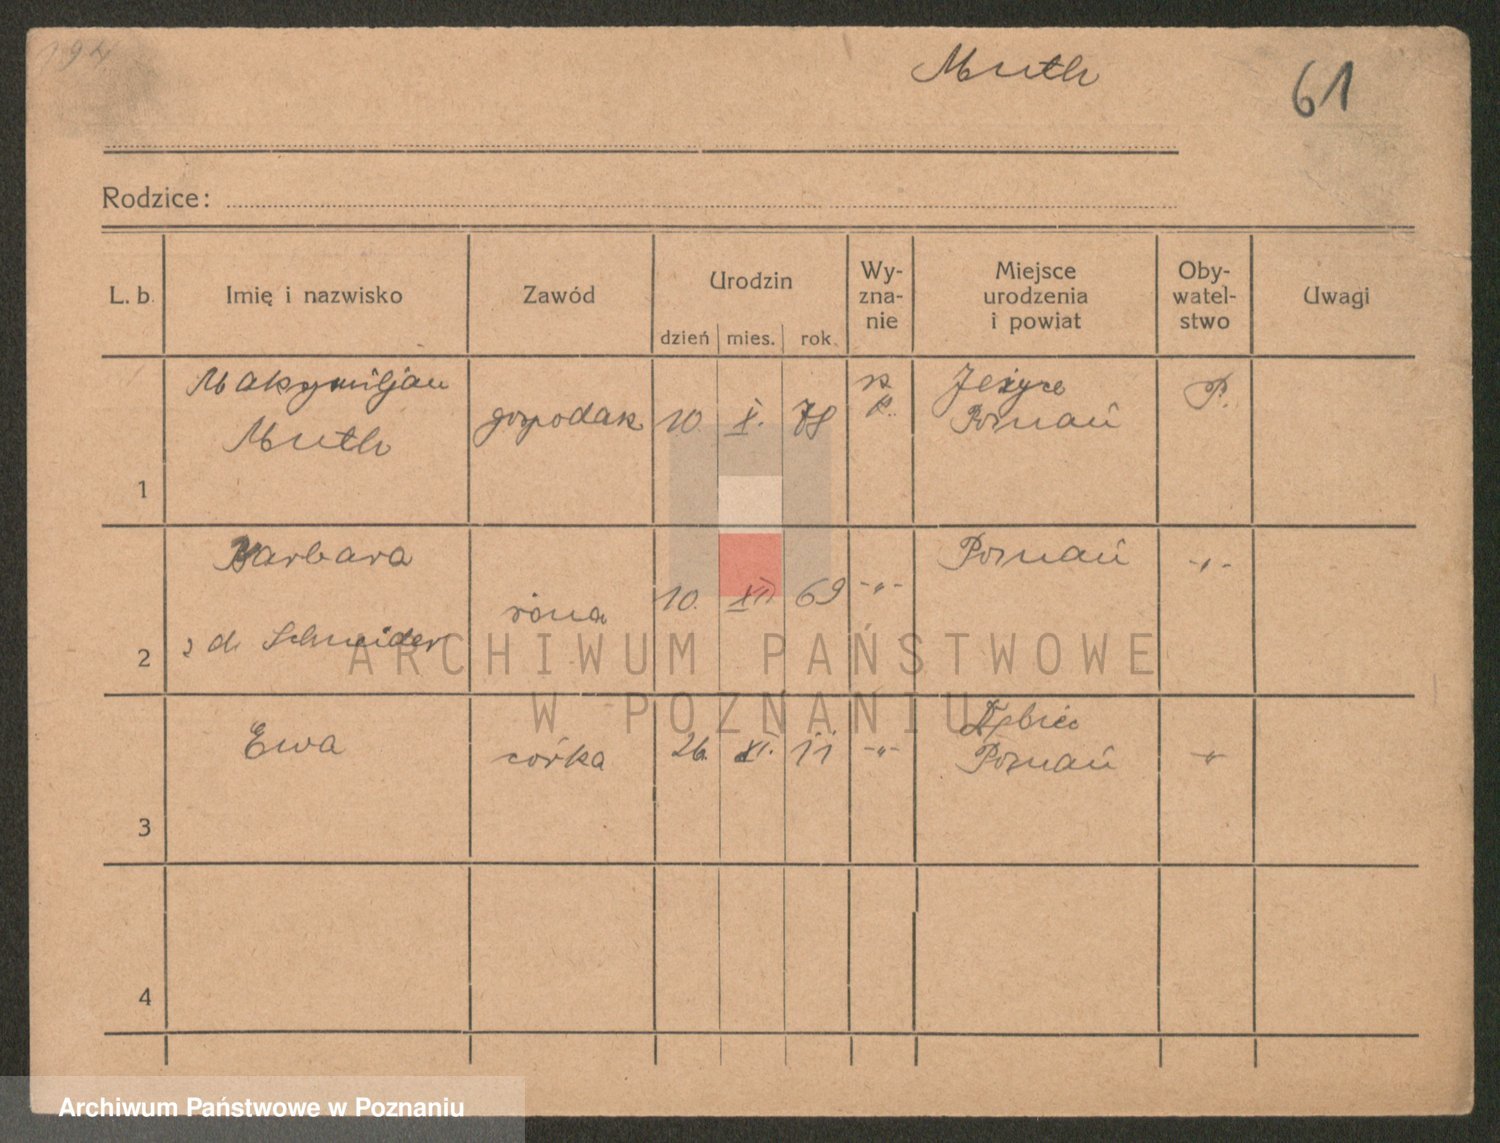 194
Muth
61
Rodzice:
L. b.
Imię i nazwisko
Zawód
Urodzin
dzień
mies.
rok
Wy-
zna-
nie
Miejsce
urodzenia
i powiat
Oby-
watel-
stwo
Uwagi
1
Maksymiljan
Muth
gospodarz
10.
X.
78
Jeżyce
Poznań
P.
2
Barbara
z d. Schneider
żona
10.
XII
69
-„-
Poznań
-„-
3
Ewa
córka
26.
XI.
11
-„-
Dębiec
Poznań
-„-
4
ARCHIWUM PAŃSTWOWE
W POZNANIU
Archiwum Państwowe w Poznaniu